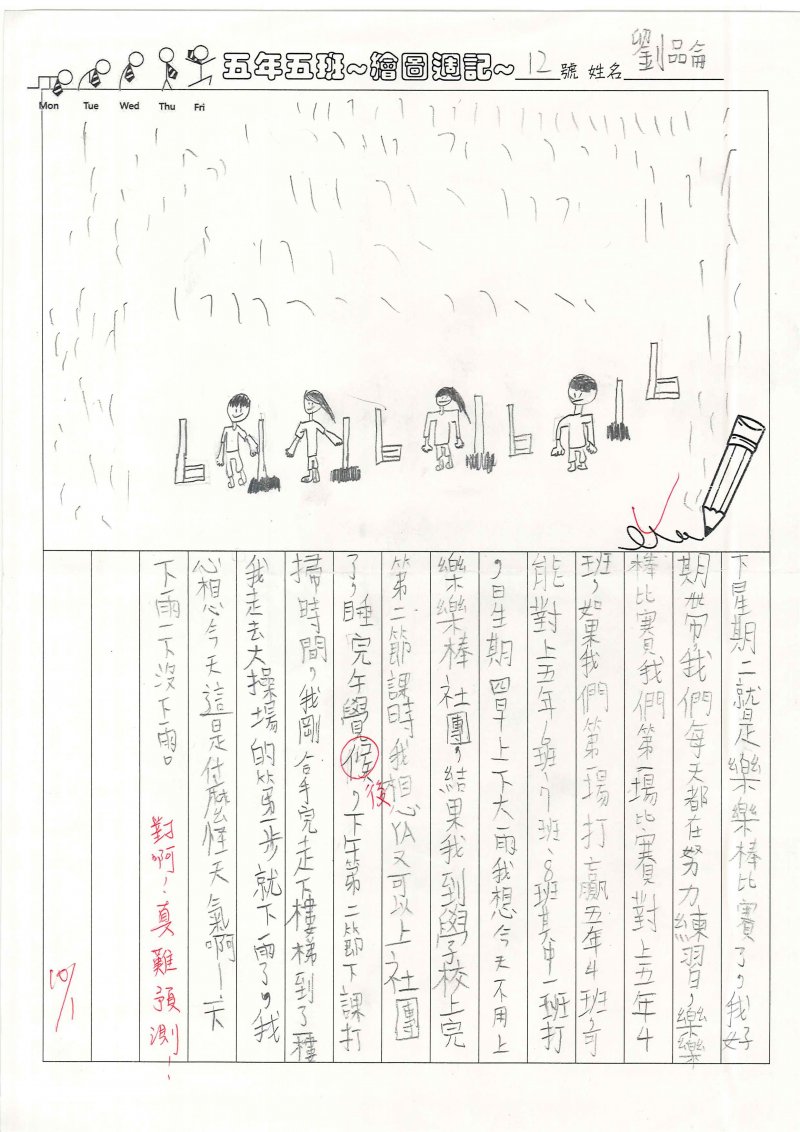 五年五班~繪圖週記~ 12 號 姓名 劉品侖
Mon Tue Wed Thu Fri
下星期二就是樂樂棒比賽了,我好
期待,我們每天都在努力練習,樂樂
棒比賽我們第一場比賽對上五年4
班,如果我們第一場打贏五年4班,可
能對上五年6班、7班、8班其中一班打
,星期四早上下大雨我想今天不用上
樂樂棒社團,結果我到學校上完
第二節課時我想YA又可以上社團
了,睡完午覺候,下午第二節下課打
後
掃時間,我剛拿完走下樓梯到了一樓
我走去大操場的第一步就下雨了,我
心想今天這是什麼怪天氣啊!一下
下雨一下沒下雨。
對啊!真難預測!
10/1